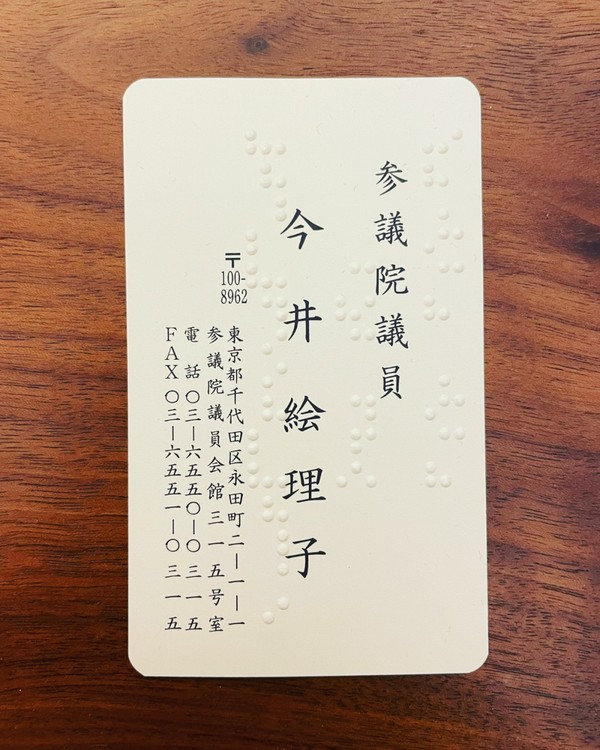 参議院議員
今井絵理子
〒100-8962
東京都千代田区永田町二ー一ー一
参議院議員会館三一五号室
電話〇三ー六五五〇ー〇三一五
FAX〇三ー六五五一ー〇三一五